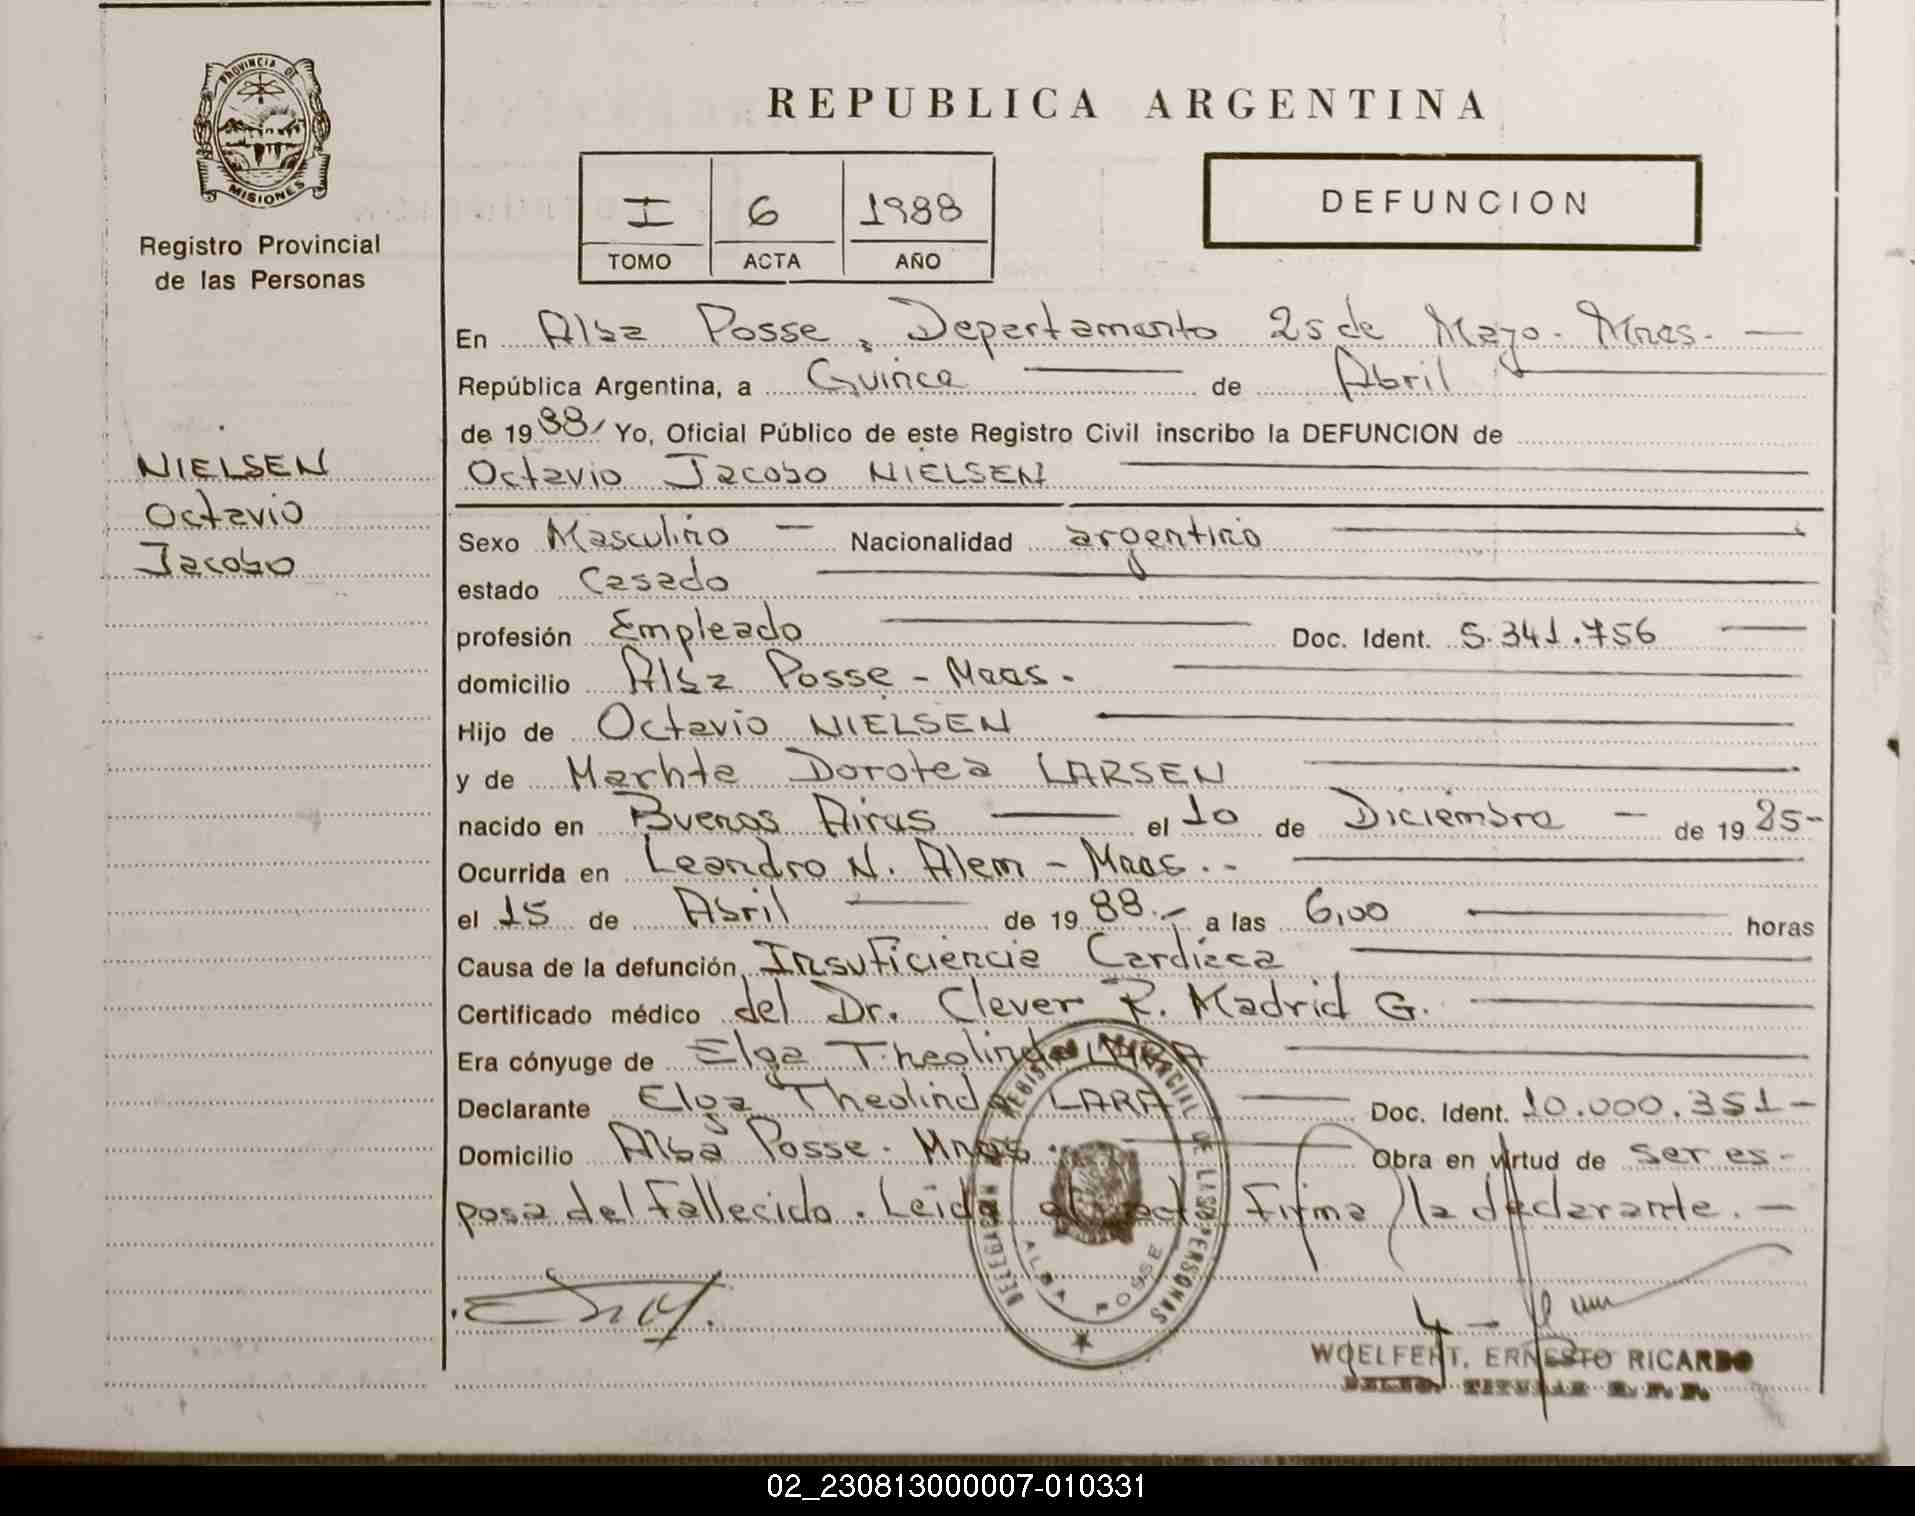 PROVINCIA DE
MISIONES
Registro Provincial
de las Personas
NIELSEN
Octavio
Jacobo
REPUBLICA ARGENTINA
I 6 1988
TOMO ACTA AÑO
DEFUNCION
En Alba Posse, Departamento 25 de Mayo - Mnes. —
República Argentina, a Quince — de Abril —
de 1988 Yo, Oficial Público de este Registro Civil inscribo la DEFUNCION de
Octavio Jacobo NIELSEN —
Sexo Masculino — Nacionalidad argentino —
estado Casado —
profesión Empleado — Doc. Ident. 5.341.756 —
domicilio Alba Posse - Mnes. —
Hijo de Octavio NIELSEN —
y de Marhte Dorotea LARSEN —
nacido en Buenos Aires — el 10 de Diciembre — de 1925-
Ocurrida en Leandro N. Alem - Mnes. - —
el 15 de Abril — de 1988.- a las 6,00 — horas
Causa de la defunción Insuficiencia Cardíaca —
Certificado médico del Dr. Clever R. Madrid G. —
Era cónyuge de Elga Theolinda LARA —
Declarante Elga Theolinda LARA — Doc. Ident. 10.000.351-
Domicilio Alba Posse - Mnes. — Obra en virtud de ser es-
posa del fallecido. Leída el acta Firma la declarante. —
DELEGACION REGISTRO PROVINCIAL DE LAS PERSONAS
ALBA POSSE
WOELFERT, ERNESTO RICARDO
TITULAR R. P. P.
02_230813000007-010331